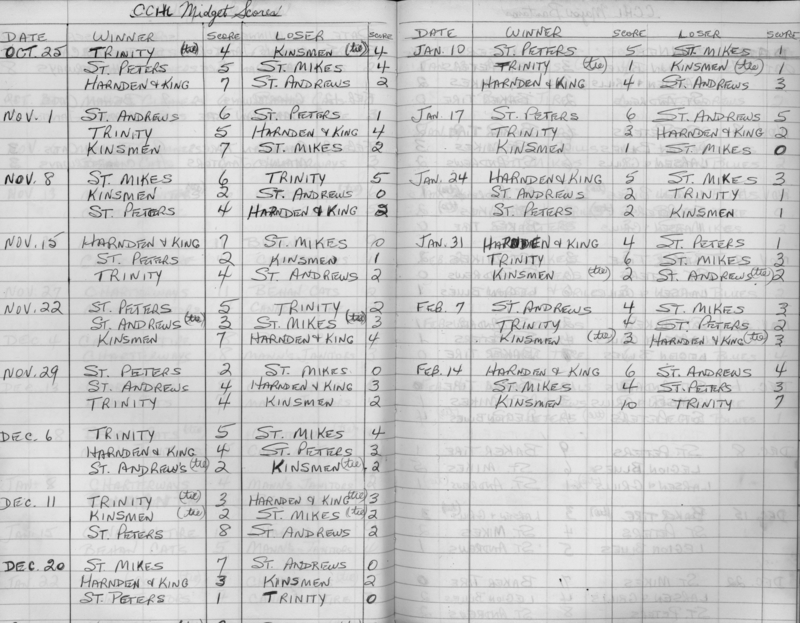 CCHL Midget Scores
DATE WINNER SCORE LOSER SCORE
OCT. 25 TRINITY (tie) 4 KINSMEN (tie) 4
ST. PETERS 5 ST. MIKES 4
HARNDEN & KING 7 ST. ANDREWS 2
NOV. 1 ST. ANDREWS 6 ST. PETERS 1
TRINITY 5 HARNDEN & KING 4
KINSMEN 7 ST. MIKES 2
NOV. 8 ST. MIKES 6 TRINITY 5
KINSMEN 2 ST. ANDREWS 0
ST. PETERS 4 HARNDEN & KING 2
NOV. 15 HARNDEN & KING 7 ST. MIKES 0
ST. PETERS 2 KINSMEN 1
TRINITY 4 ST. ANDREWS 2
NOV. 22 ST. PETERS 5 TRINITY 2
ST. ANDREWS (tie) 3 ST. MIKES (tie) 3
KINSMEN 7 HARNDEN & KING 4
NOV. 29 ST. PETERS 2 ST. MIKES 0
ST. ANDREWS 4 HARNDEN & KING 3
TRINITY 4 KINSMEN 2
DEC. 6 TRINITY 5 ST. MIKES 4
HARNDEN & KING 4 ST. PETERS 3
ST. ANDREWS (tie) 2 KINSMEN (tie) 2
DEC. 11 TRINITY (tie) 3 HARNDEN & KING (tie) 3
KINSMEN (tie) 2 ST. MIKES (tie) 2
ST. PETERS 8 ST. ANDREWS 2
DEC. 20 ST. MIKES 7 ST. ANDREWS 0
HARNDEN & KING 3 KINSMEN 2
ST. PETERS 1 TRINITY 0
DATE WINNER SCORE LOSER SCORE
JAN. 10 ST. PETERS 5 ST. MIKES 1
TRINITY (tie) 1 KINSMEN (tie) 1
HARNDEN & KING 4 ST. ANDREWS 3
JAN 17 ST. PETERS 6 ST. ANDREWS 5
TRINITY 3 HARNDEN & KING 2
KINSMEN 1 ST. MIKES 0
JAN. 24 HARNDEN & KING 5 ST. MIKES 3
ST. ANDREWS 2 TRINITY 1
ST. PETERS 2 KINSMEN 1
JAN. 31 HARNDEN & KING 4 ST. PETERS 1
TRINITY 6 ST. MIKES 3
KINSMEN (tie) 2 ST. ANDREWS (tie) 2
FEB. 7 ST. ANDREWS 4 ST. MIKES 3
TRINITY 4 ST. PETERS 2
KINSMEN (tie) 3 HARNDEN & KING (tie) 3
FEB. 14 HARNDEN & KING 6 ST. ANDREWS 4
ST. MIKES 4 ST. PETERS 3
KINSMEN 10 TRINITY 7